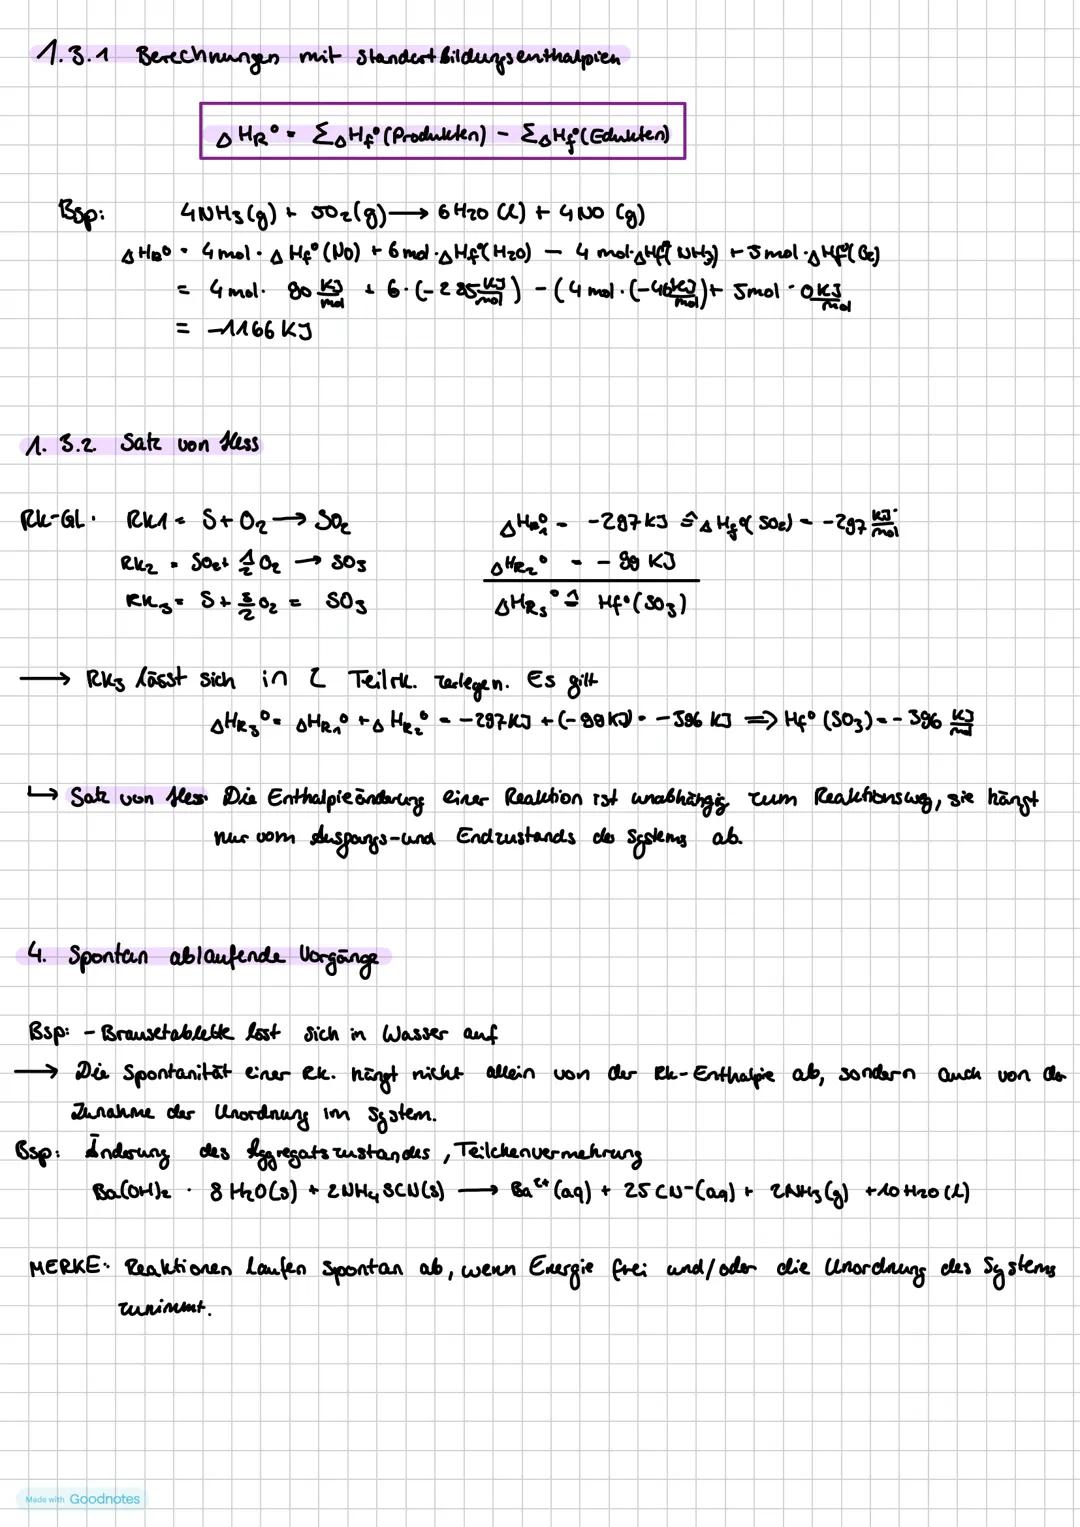 1.3.1 Berechnungen mit Standartbildungsenthalpien
ΔHR° = ΣΔHf°(Produkten) - ΣΔHf°(Edukten)
Bsp: 4NH3(g) + 5O2(g) → 6H2O (l) + 4NO (g)
ΔHR° = 4mol · ΔHf°(NO) + 6mol · ΔHf°(H2O) - 4 mol · ΔHf°(NH3) + 5mol · ΔHf°(O2)
= 4mol · 90 KJ/mol + 6 · (-285 KJ/mol) - (4mol · (-46 KJ/mol) + 5mol · 0 KJ/mol
= -1166 KJ
1.3.2. Satz von Hess
RK-GL. RK1 = S + O2 → SO2 ΔHR1° = -297 KJ ≙ ΔHf°(SO2) = -297 KJ/mol
RK2 = SO2 + 1/2 O2 → SO3 ΔHR2° = -99 KJ
RK3 = S + 3/2 O2 = SO3 ΔHR3° ≙ Hf°(SO3)
→ RK3 lässt sich in 2 Teilrk. zerlegen. Es gilt
ΔHR3° = ΔHR1° + ΔHR2° = -297KJ + (-99KJ) = -396 KJ ⇒ Hf° (SO3) = -396 KJ/mol
↳ Satz von Hess: Die Enthalpieänderung einer Reaktion ist unabhängig zum Reaktionsweg, sie hängt
nur vom Ausgangs- und Endzustands des Systems ab.
4. Spontan ablaufende Vorgänge
Bsp: - Brausetablette löst sich in Wasser auf
→ Die Spontanität einer Rk. hängt nicht allein von der Rk-Enthalpie ab, sondern auch von der
Zunahme der Unordnung im System.
Bsp: Änderung des Aggregatszustandes, Teilchenvermehrung
Ba(OH)2 · 8 H2O(s) + 2NH4SCN(s) → Ba2+ (aq) + 2SCN-(aq) + 2NH3(g) + 10 H2O (l)
MERKE: Reaktionen laufen spontan ab, wenn Energie frei und/oder die Unordnung des Systems
zunimmt.
Made with Goodnotes